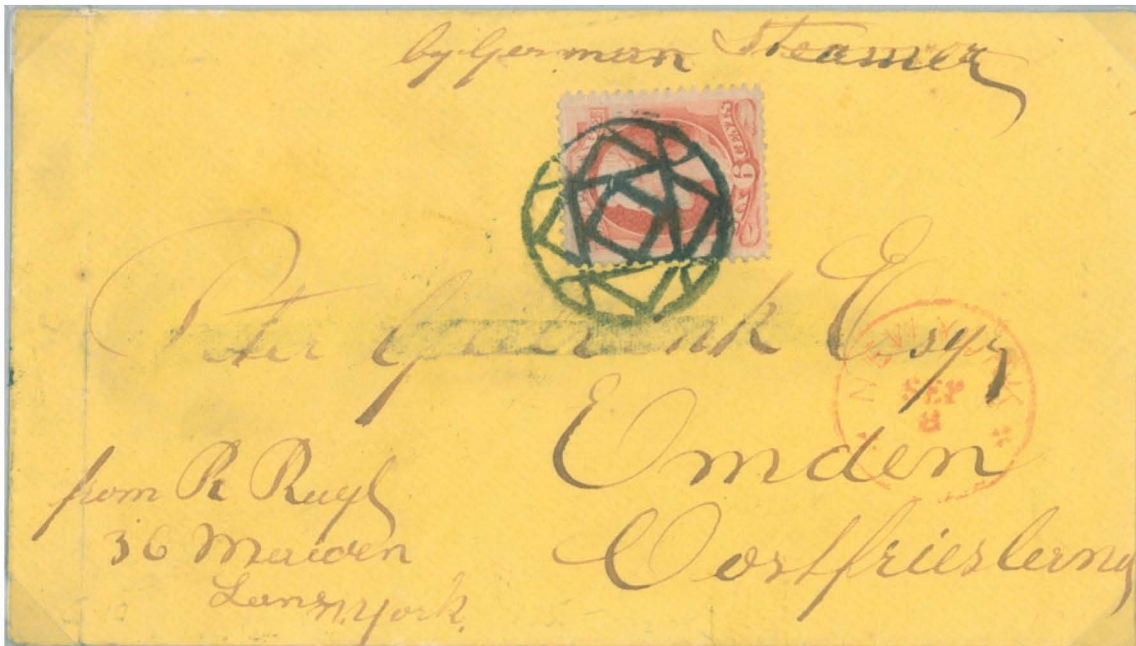 by German Steamer
Peter Esqr
NEW YORK
SEP
8
Emden
Oostfriesland
from R Ruyl
36 Maiden
Lane N. York.